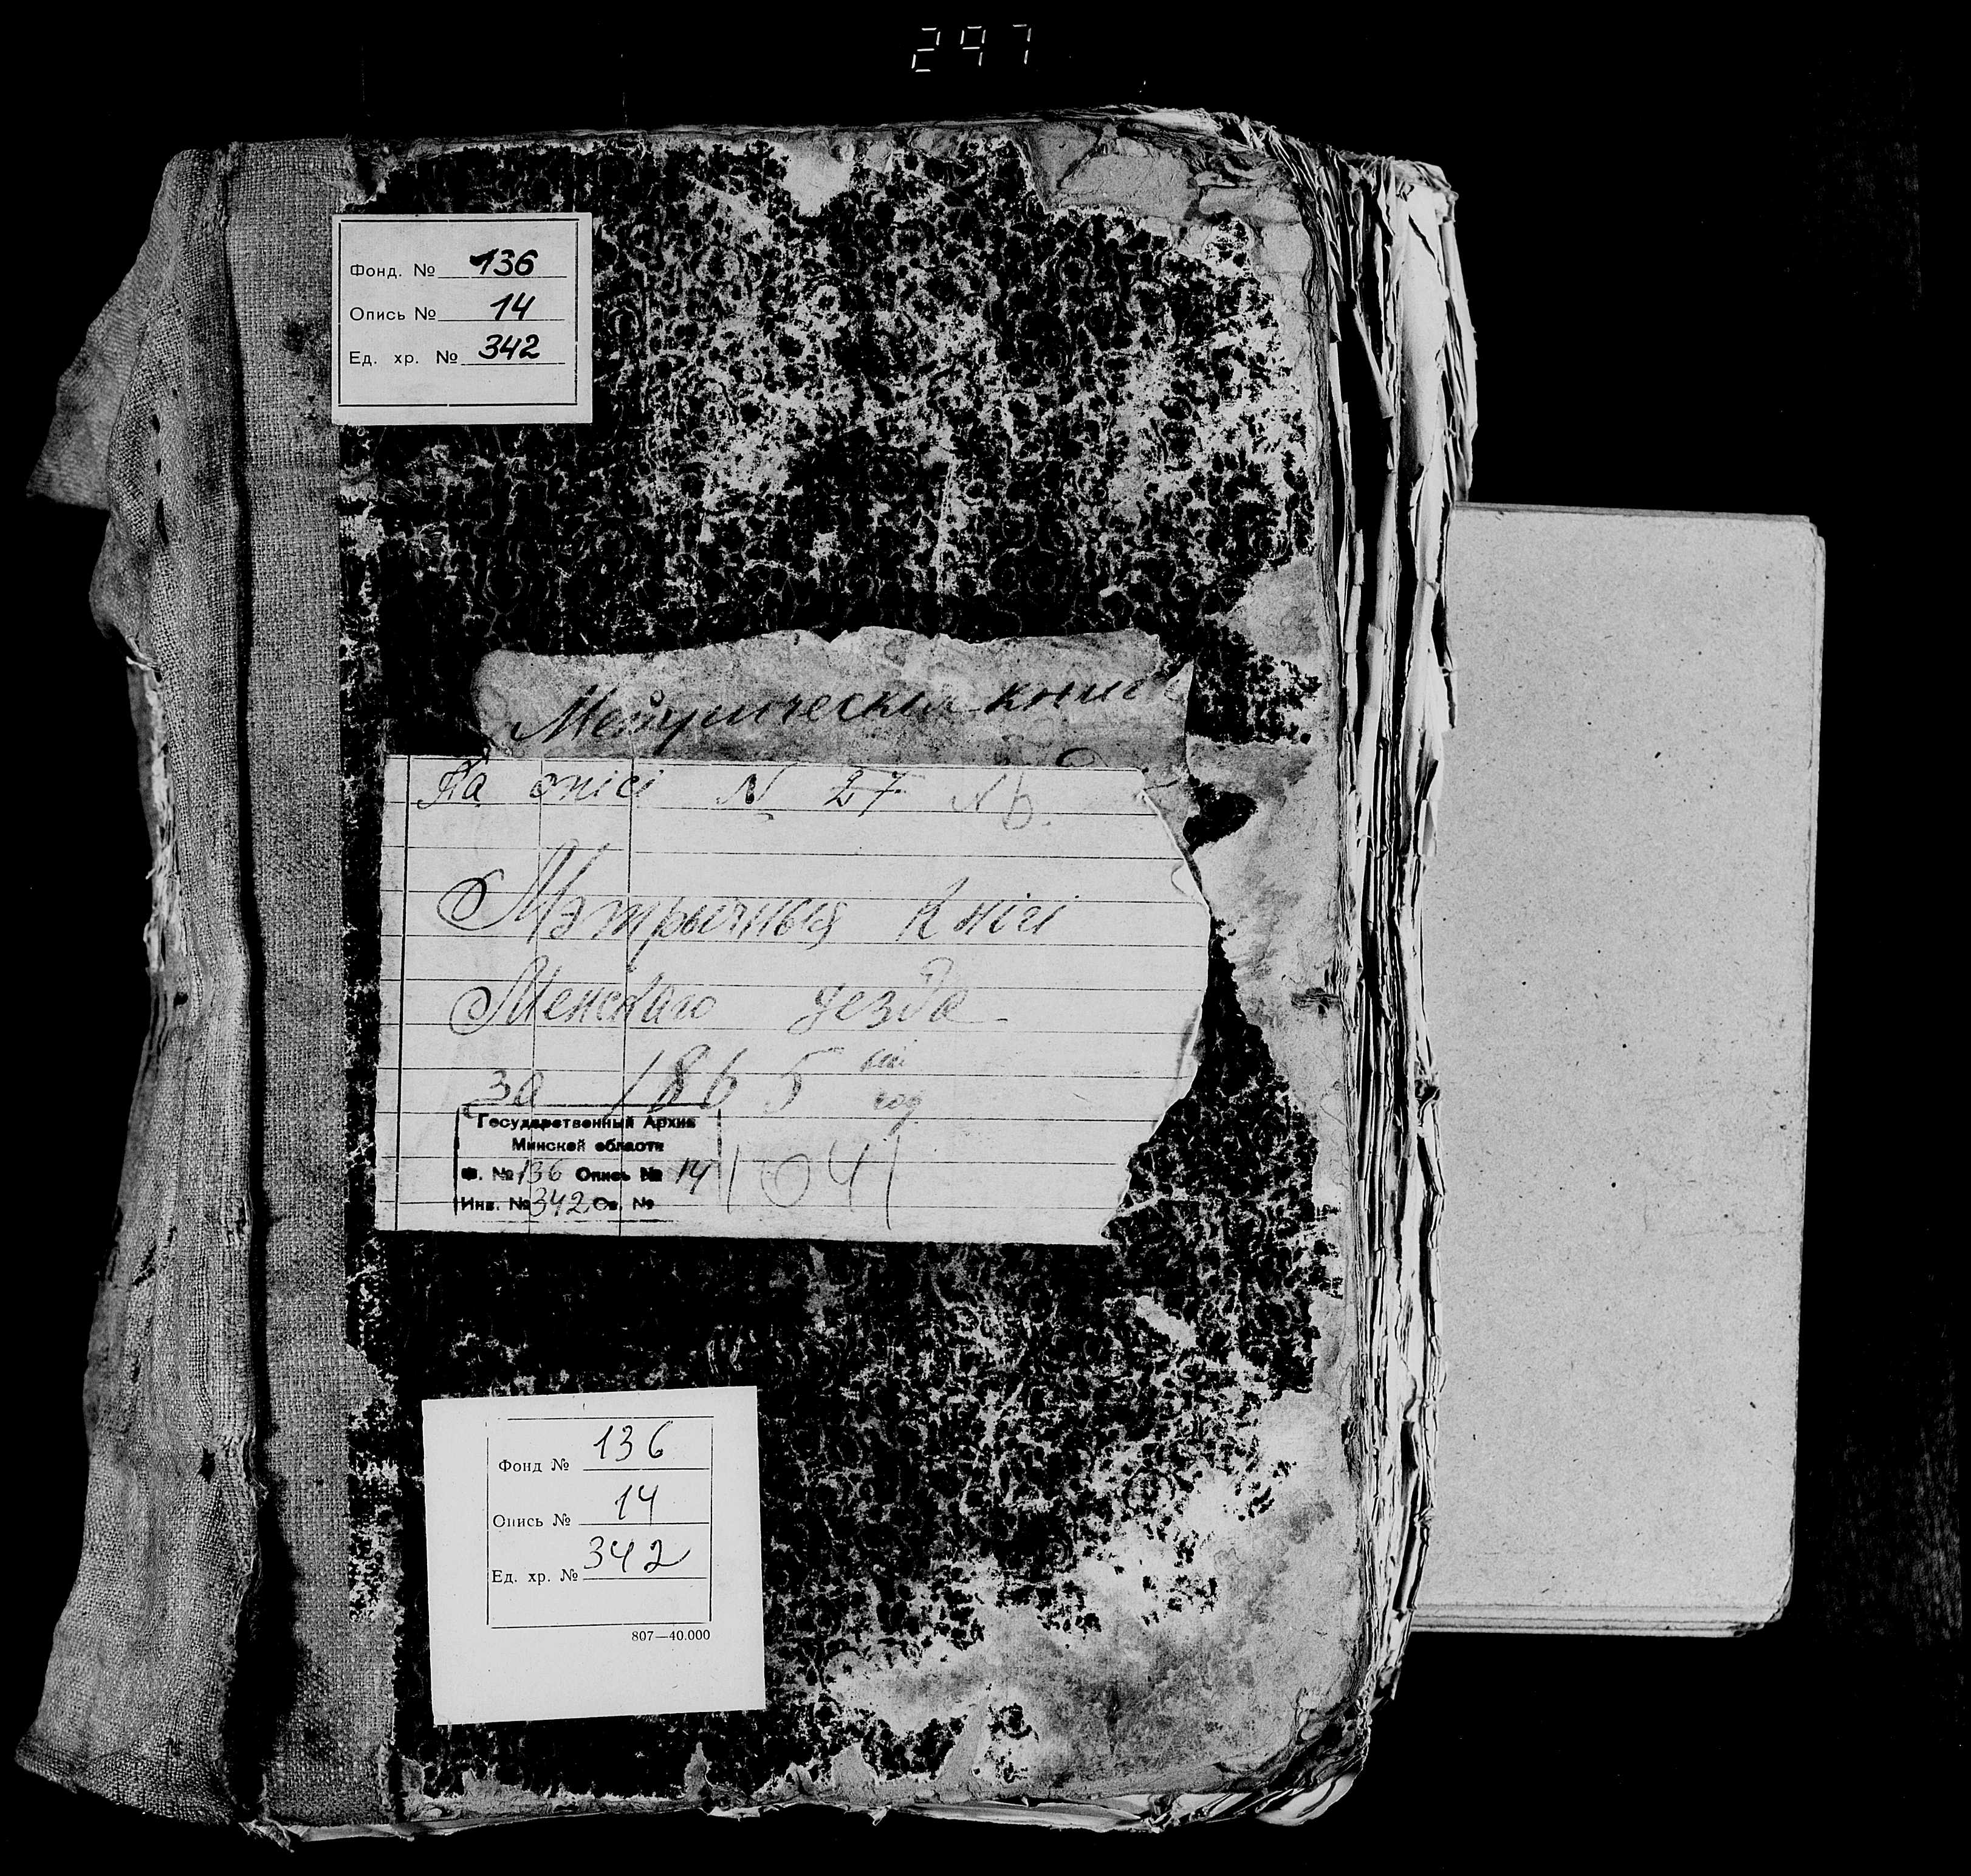 297
Фонд. № 136
Опись № 14
Ед. хр. № 342
Метрическия книги
Па опісі № 27 № 6.
Мэтрычныя кнігі
Менскаго уезда
за 1865 год
Государственный Архив
Минской области
Ф. № 136 Опись № 14
Инв. № 342 Св. №
1041
Фонд № 136
Опись № 14
Ед. хр. № 342
807—40.000